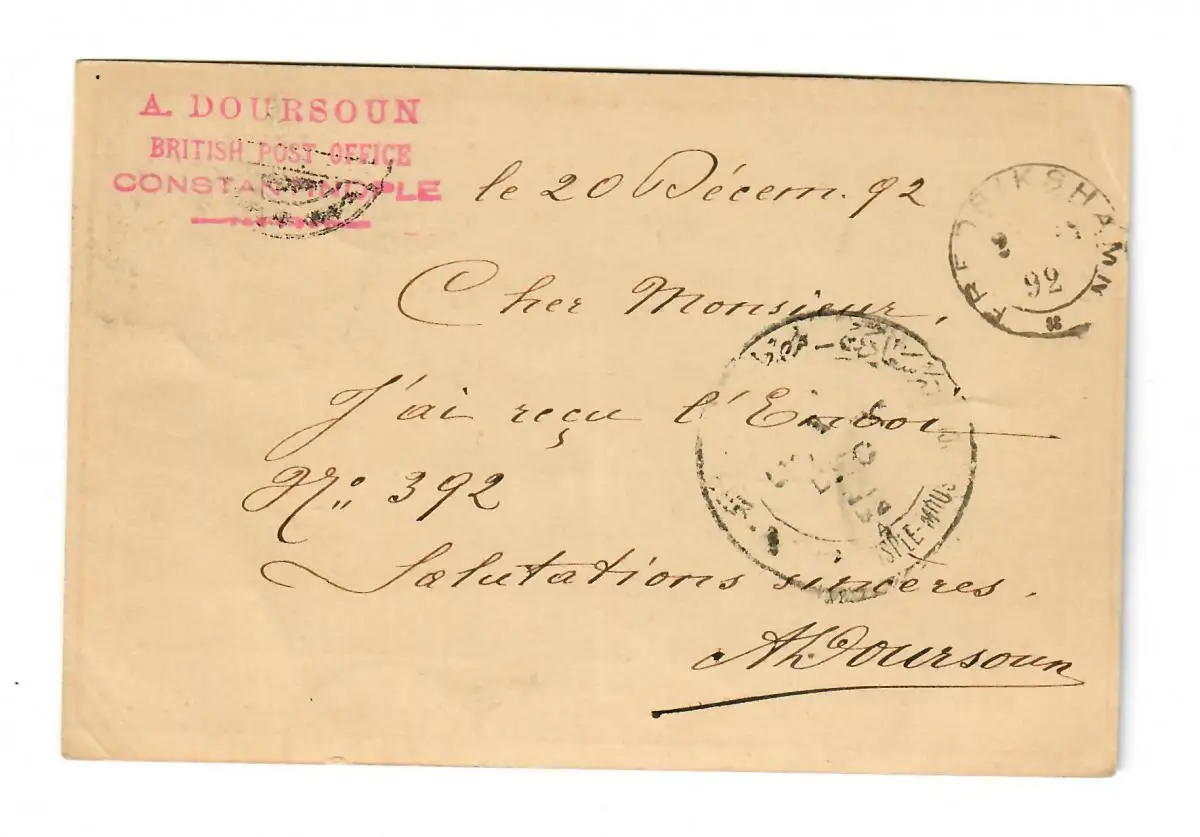 A. DOURSOUN
BRITISH POST OFFICE
CONSTANTINOPLE
le 20 Décem. 92
FREDRIKSHAMN
92
Cher Monsieur,
J'ai reçu l'Envoi
No: 392
Salutations sincères.
Ah. Doursoun